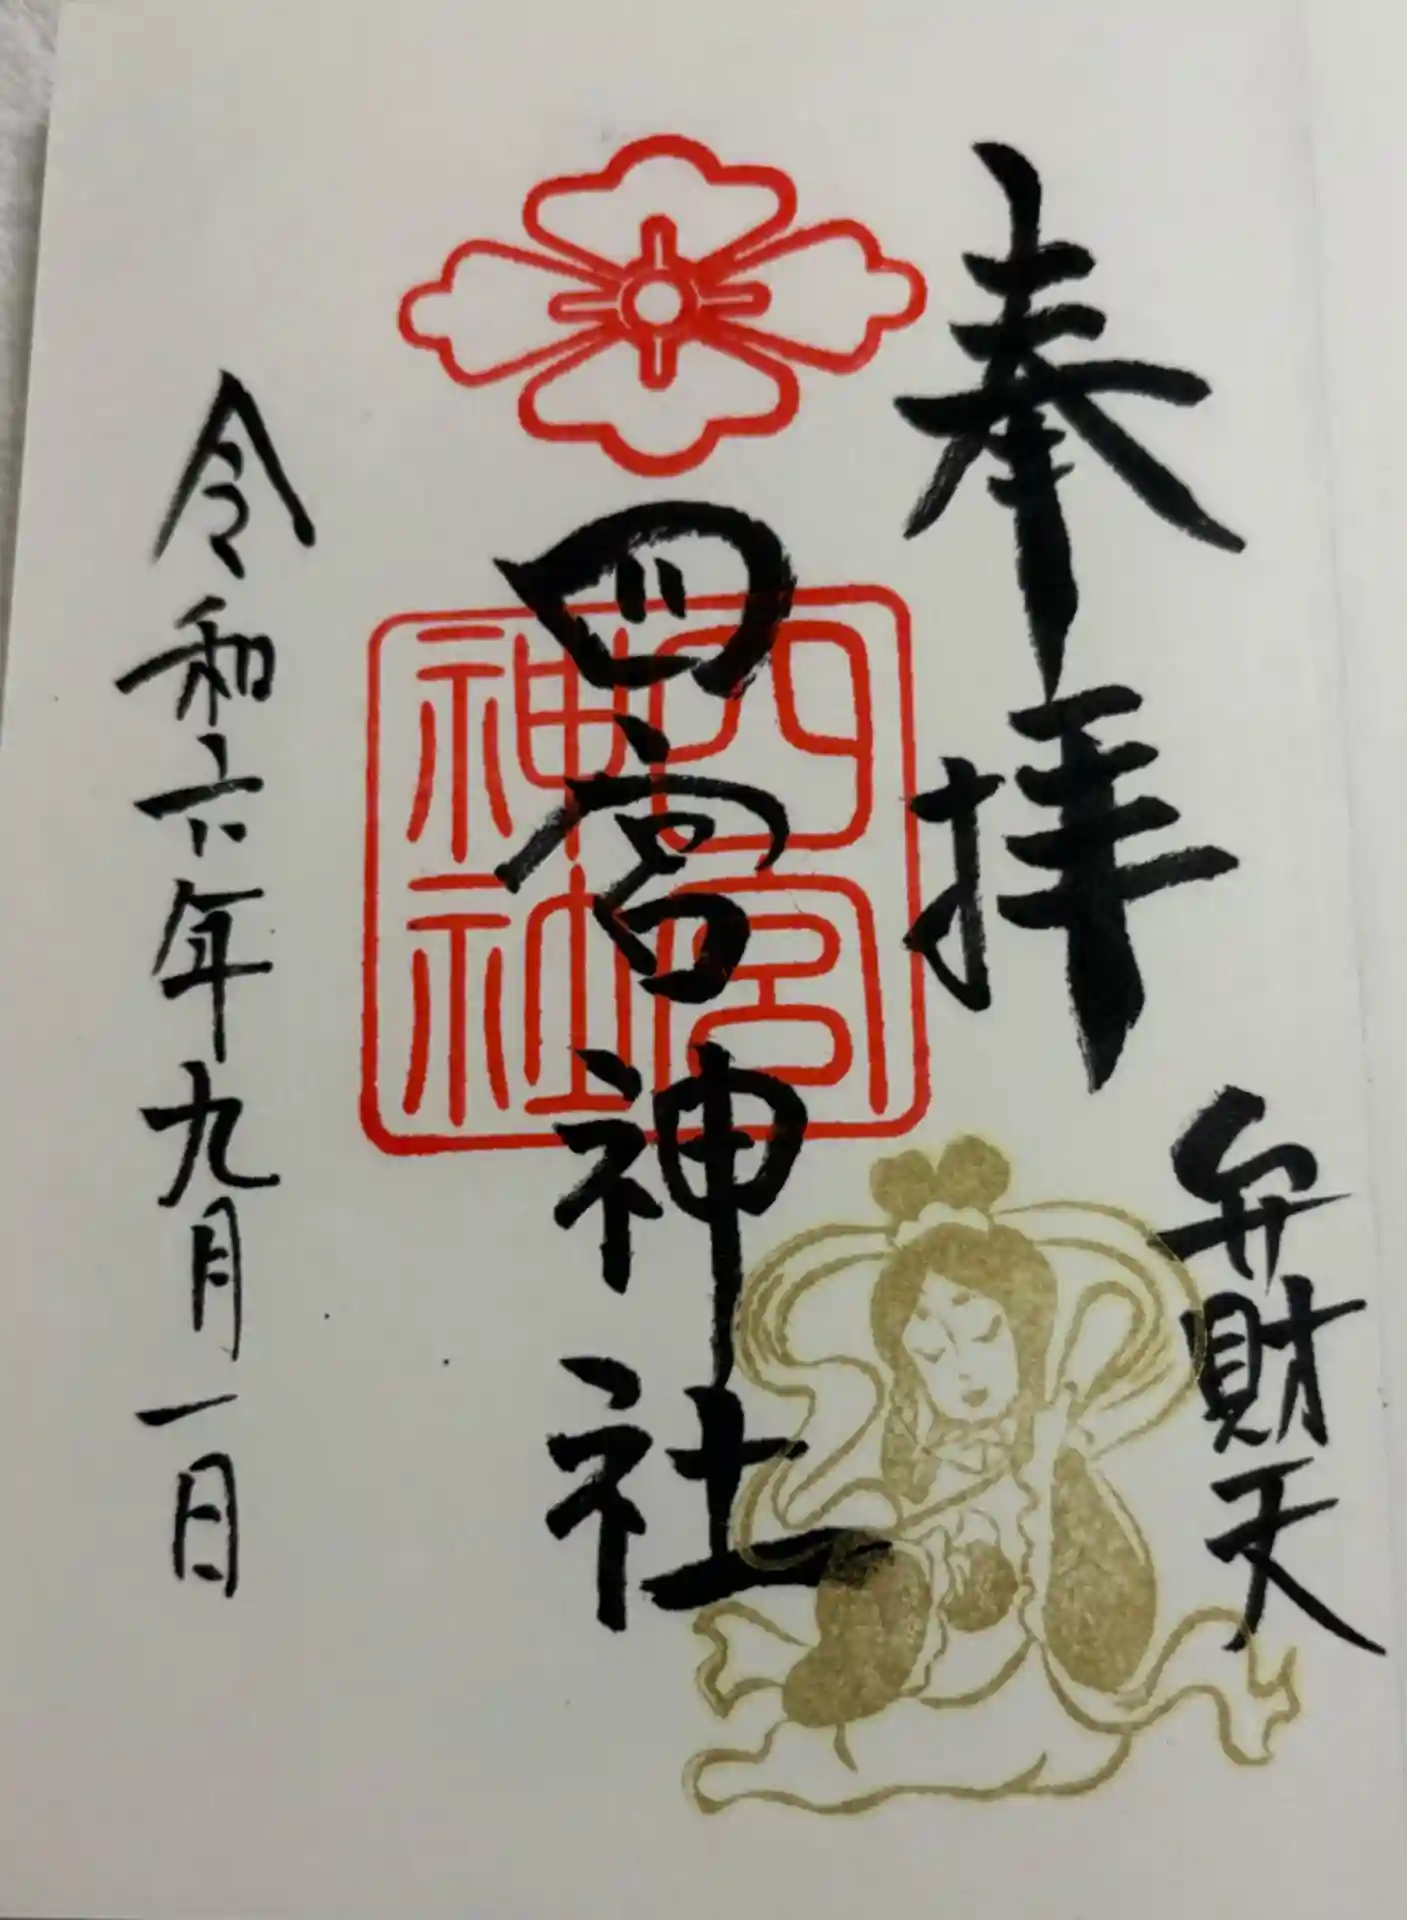 奉拝
弁財天
四宮神社
四宮
神社
令和六年九月一日